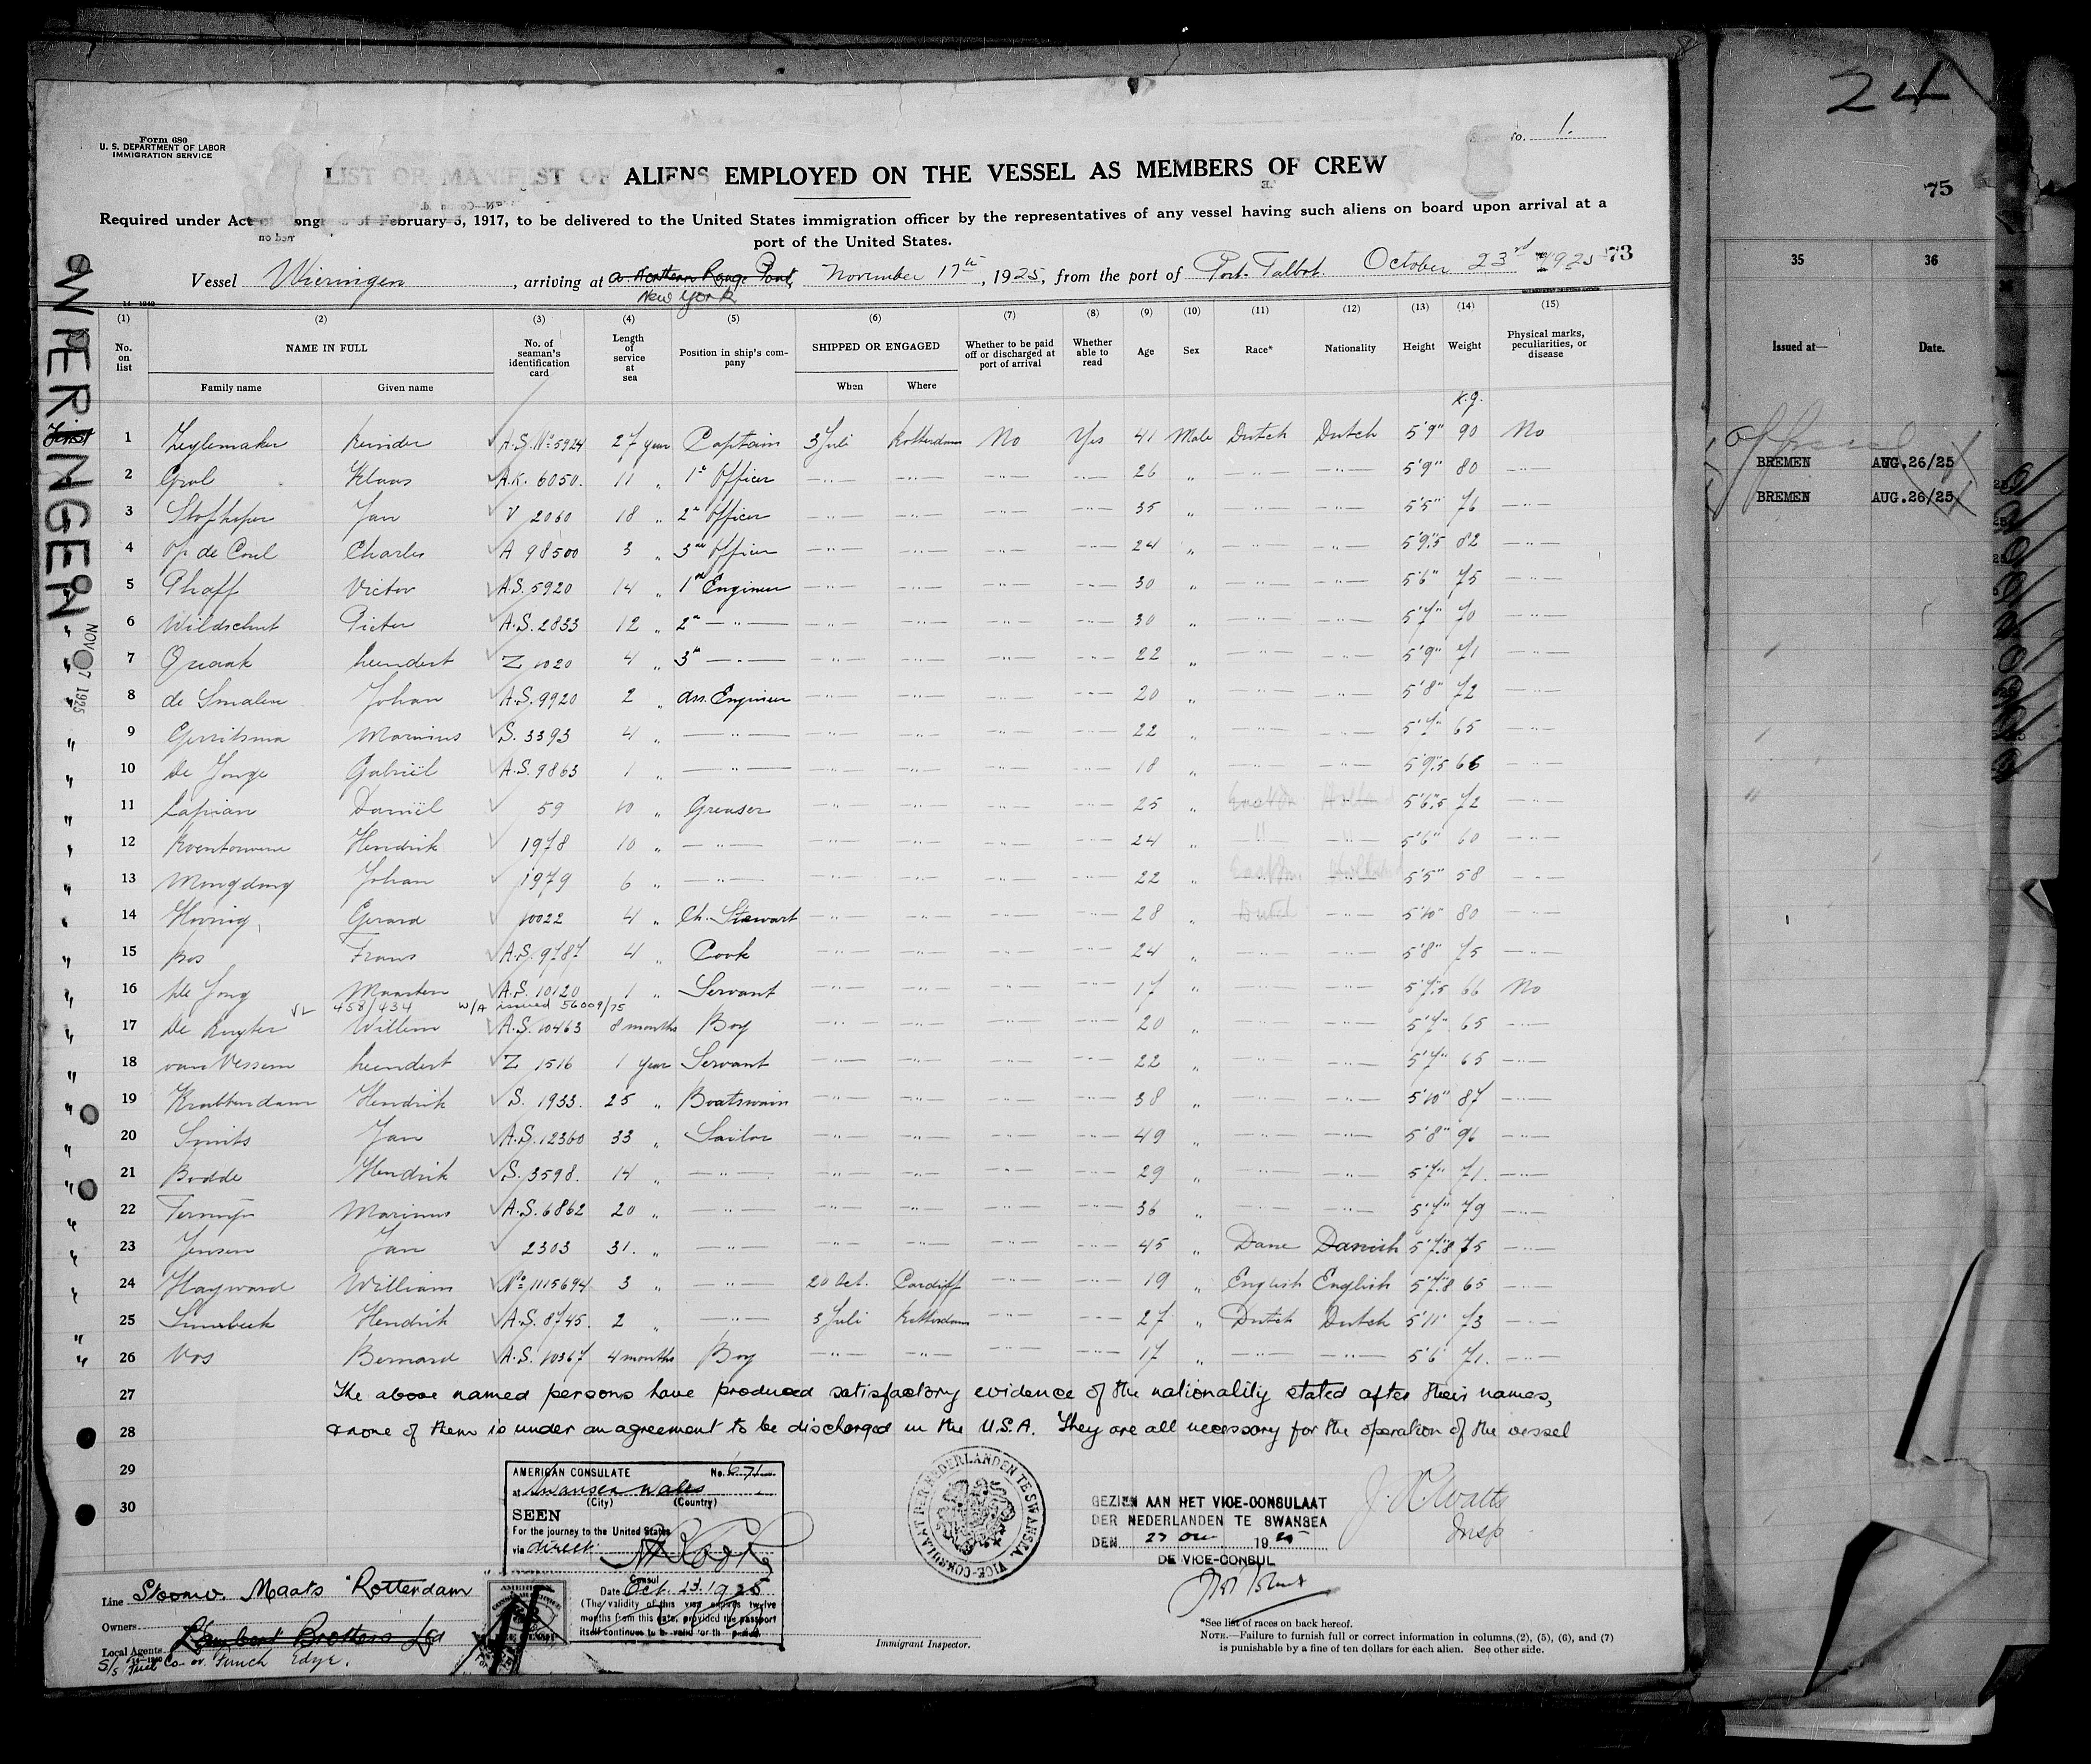 24
75
35 36
Issued at— Date.
BREMEN AUG.26/25
BREMEN AUG.26/25
Form 680
U. S. DEPARTMENT OF LABOR
IMMIGRATION SERVICE
No. 1.
LIST OR MANIFEST OF ALIENS EMPLOYED ON THE VESSEL AS MEMBERS OF CREW
Required under Act of Congress of February 5, 1917, to be delivered to the United States immigration officer by the representatives of any vessel having such aliens on board upon arrival at a
port of the United States.
Vessel Wieringen, arriving at a Northern Range Port, November 17th, 1925, from the port of Port Talbot October 23rd 1925 73
New York
WIERINGEN
NOV 17 1925
(1) (2) (3) (4) (5) (6) (7) (8) (9) (10) (11) (12) (13) (14) (15)
No. on list NAME IN FULL No. of seaman's identification card Length of service at sea Position in ship's company SHIPPED OR ENGAGED Whether to be paid off or discharged at port of arrival Whether able to read Age Sex Race* Nationality Height Weight Physical marks, peculiarities, or disease
Family name Given name When Where
K.g.
1 Zeylemaker Reinder A.S. No 5924 27 year Captain 3 Juli Rotterdam No Yes 41 Male Dutch Dutch 5'9" 90 No
2 Grol Klaas A.K. 6050. 11 " 1e Officer —"— —"— —"— —"— 26 " —"— —"— 5'9" 80 —"—
3 Jan V 2060 18 " 2e Officer —"— —"— —"— —"— 35 " —"— —"— 5'5" 76 —"—
4 Op de Coul Charles A 98500 3 " 3de Officer —"— —"— —"— —"— 24 " —"— —"— 5'9".5 82 —"—
5 Phaff Victor A.S. 5920 14 " 1st Engineer —"— —"— —"— —"— 30 " —"— —"— 5'6" 75 —"—
6 Wildschut Pieter A.S. 2833 12 " 2e —"— —"— —"— —"— —"— 30 " —"— —"— 5'7" 70 —"—
7 Quaak Leendert Z 1020 4 " 3e —"— —"— —"— —"— —"— 22 " —"— —"— 5'9" 71 —"—
8 de Smalen Johan A.S. 9920 2 " ass. Engineer —"— —"— —"— —"— 20 " —"— —"— 5'8" 72 —"—
9 Gerritsma Marinus S. 3393 4 " —"— —"— —"— —"— —"— 22 " —"— —"— 5'7" 65 —"—
10 de Jonge Gabriël A.S. 9863 1 " —"— —"— —"— —"— —"— 18 " —"— —"— 5'9".5 66 —"—
11 Lapian Daniël 59 10 " Greaser —"— —"— —"— —"— 25 " East Ind. Holland 5'6".5 72 —"—
12 Hendrik 1978 10 " —"— —"— —"— —"— —"— 24 " " —"— 5'6" 60 —"—
13 Mongdong Johan 1979 6 " —"— —"— —"— —"— —"— 22 " East Ind. Holland 5'5" 58 —"—
14 Gerard 10022 4 " Ch. Stewart —"— —"— —"— —"— 28 " Dutch —"— 5'10" 80 —"—
15 Bos Frans A.S. 9787 4 " Cook —"— —"— —"— —"— 24 " —"— —"— 5'8" 75 —"—
16 de Jong Maarten A.S. 10120 1 " Servant —"— —"— —"— —"— 17 " —"— —"— 5'7".5 66 No
VL 458/434 W/A issued 56009/75
17 de Ruyter Willem A.S. 10463 8 months Boy —"— —"— —"— —"— 20 " —"— —"— 5'7" 65 —"—
18 van Vessem Leendert Z 1516 1 year Servant —"— —"— —"— —"— 22 " —"— —"— 5'7" 65 —"—
19 Krabbendam Hendrik S. 1933. 25 " Boatswain —"— —"— —"— —"— 38 " —"— —"— 5'10" 87 —"—
20 Smits Jan A.S. 12360 33 " Sailor —"— —"— —"— —"— 49 " —"— —"— 5'8" 96 —"—
21 Bodde Hendrik S. 3598. 14 " —"— —"— —"— —"— —"— 29 " —"— —"— 5'7" 71. —"—
22 Marinus A.S. 6862 20 " —"— —"— —"— —"— —"— 36 " —"— —"— 5'7" 79 —"—
23 Jensen Jan 2303 31. " —"— —"— —"— —"— —"— 45 " Dane Danish 5'7".8 75 —"—
24 Hayward William No 1115694 3 " —"— 20 Oct. Cardiff —"— —"— 19 " English English 5'7".8 65 —"—
25 Hendrik A.S. 8745. 2 " —"— 3 Juli Rotterdam —"— —"— 27 " Dutch Dutch 5'11" 73 —"—
26 Vos Bernard A.S. 10367 4 months Boy —"— —"— —"— —"— 17 " —"— —"— 5'6" 71. —"—
27 The above named persons have produced satisfactory evidence of the nationality stated after their names,
28 & none of them is under an agreement to be discharged in the U.S.A. They are all necessary for the operation of the vessel
29
30
AMERICAN CONSULATE No. 671
at Swansea Wales
(City) (Country)
SEEN
For the journey to the United States
via direct
Consul
Date Oct. 23. 1925
(The validity of this visa expires twelve
months from this date, provided the passport
itself continues to be valid for th period.
VICE-CONSULAAT DER NEDERLANDEN TE SWANSEA
GEZIEN AAN HET VICE-CONSULAAT
DER NEDERLANDEN TE SWANSEA
DEN 23 Oct 1925
DE VICE-CONSUL
J. H. Watts
Insp
Line Stoomv. Maats "Rotterdam
Owners
Local Agents Lambert Brothers Ltd
S/s Fuel Co. or Funch Edye.
Immigrant Inspector.
*See list of races on back hereof.
NOTE.—Failure to furnish full or correct information in columns (2), (5), (6), and (7)
is punishable by a fine of ten dollars for each alien. See other side.